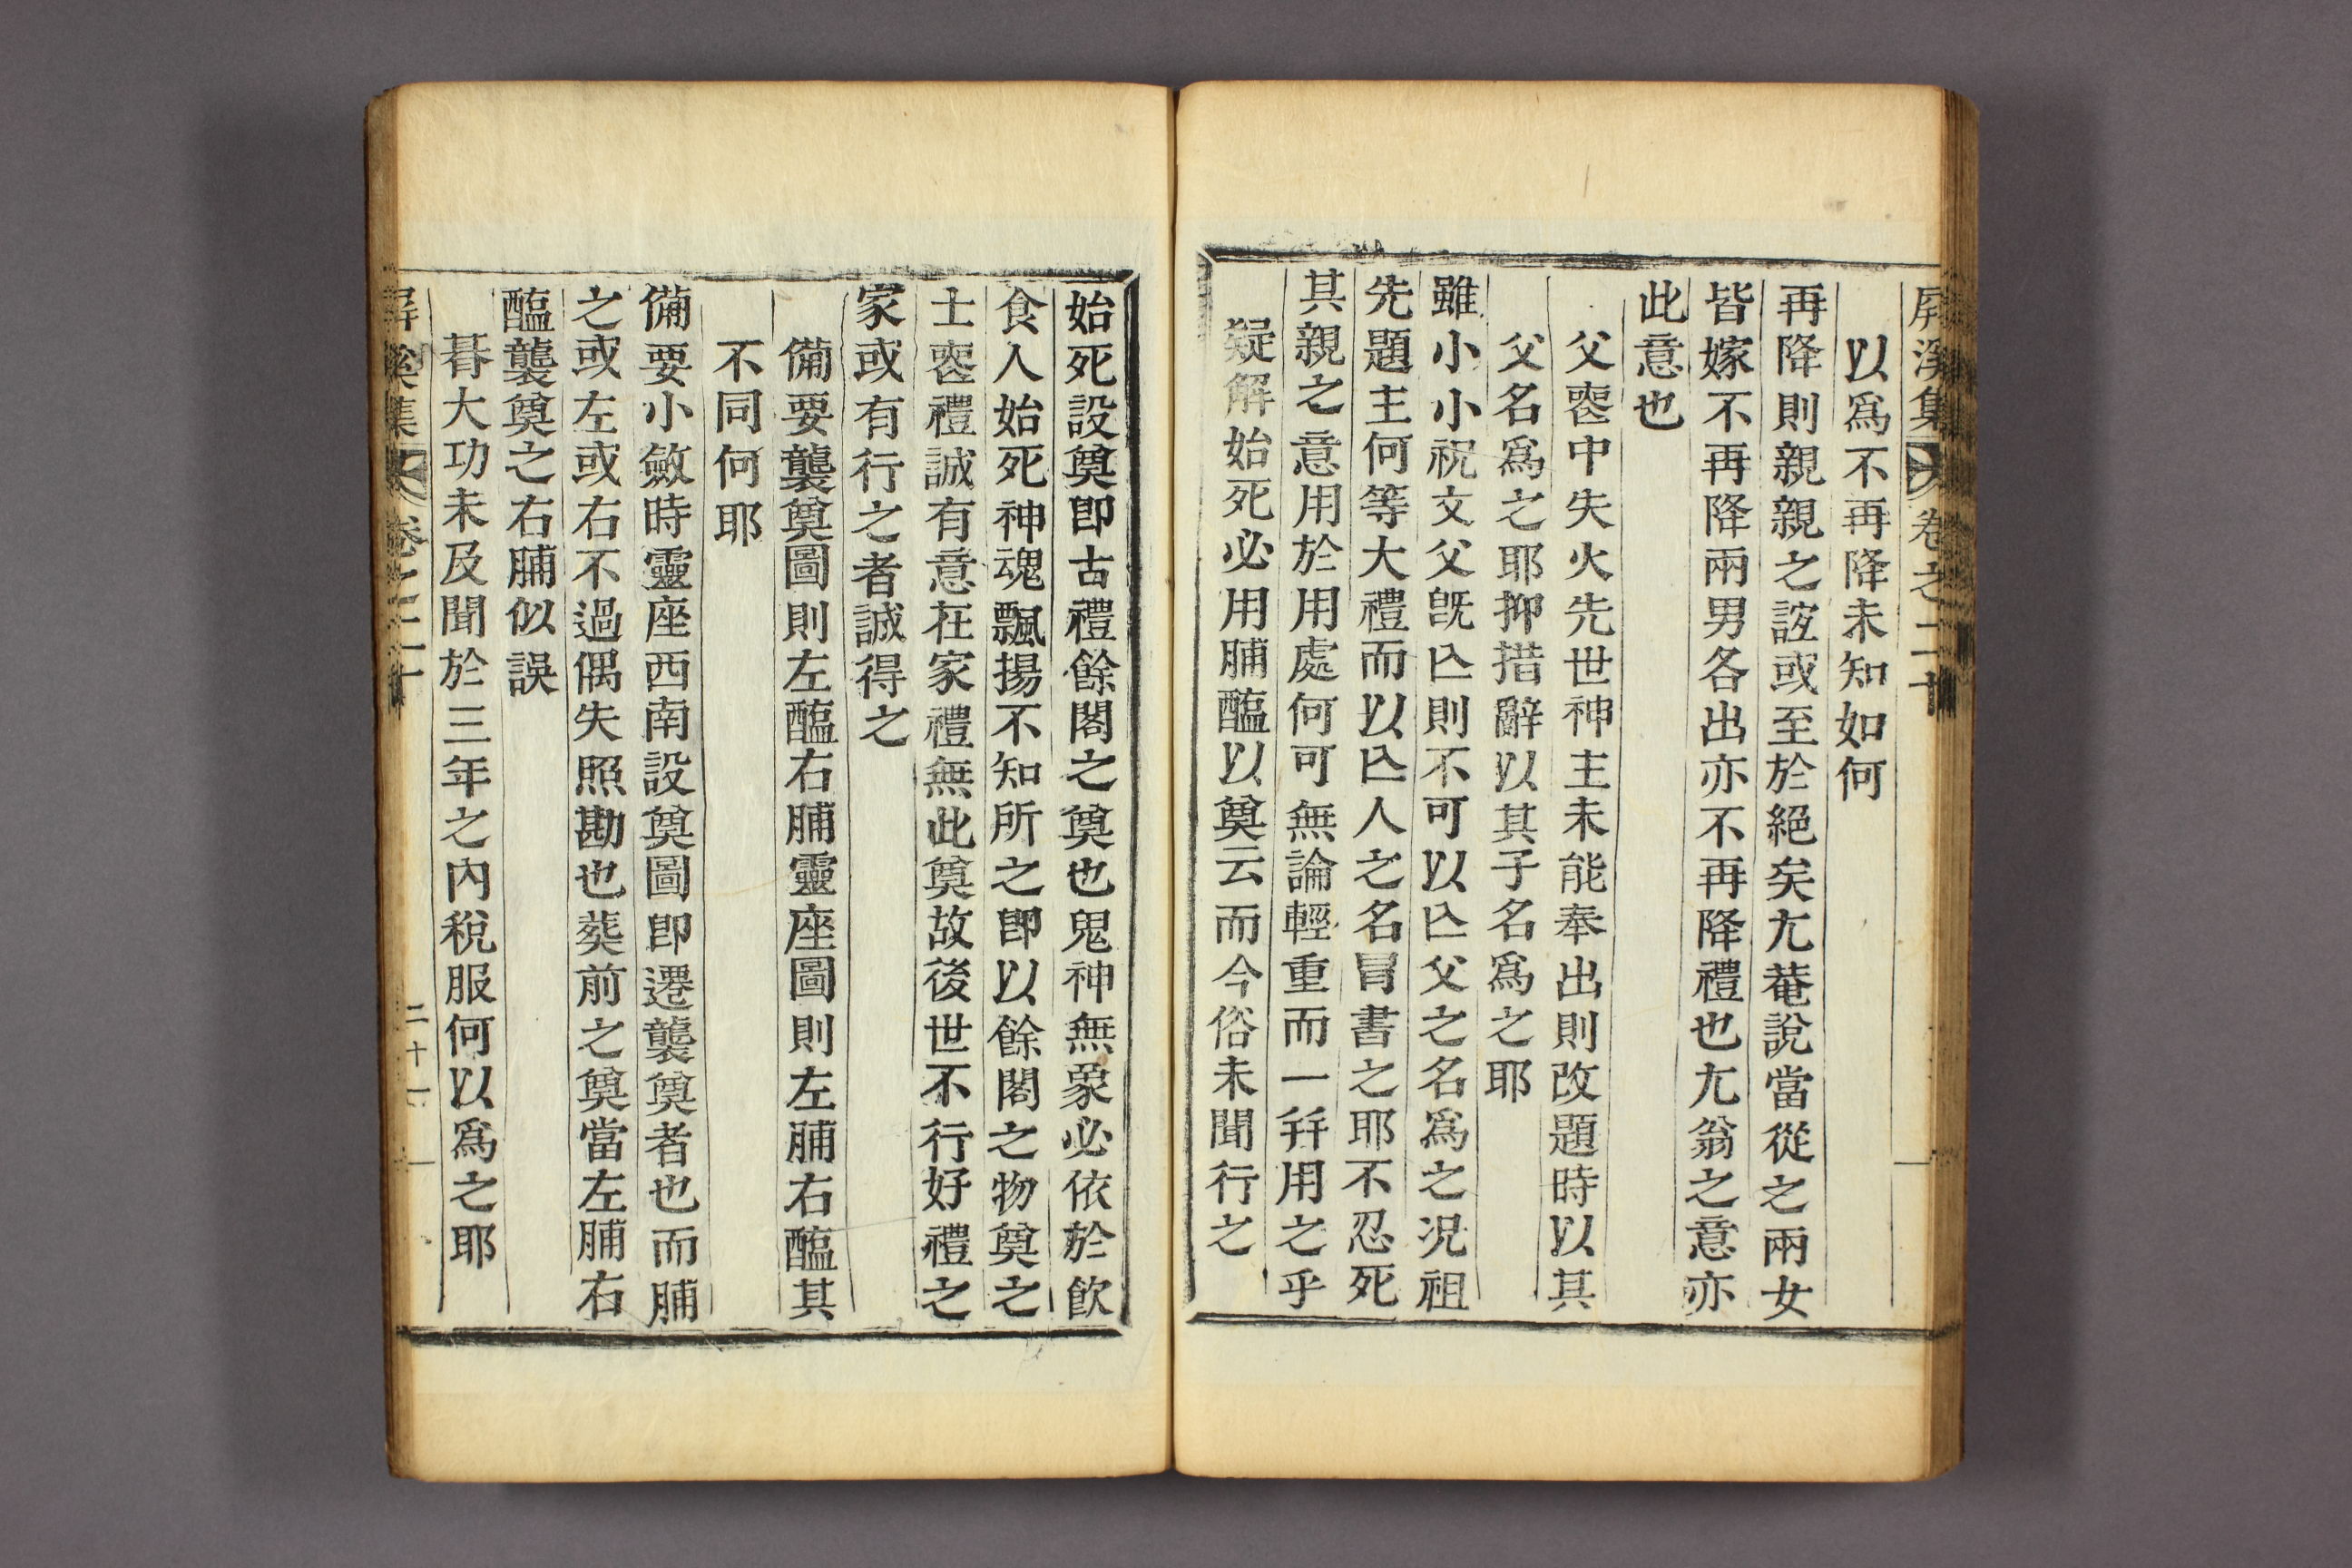 屛溪集 卷之二十
以爲不再降未知如何
再降則親親之誼或至於絕矣尤菴說當從之兩女
皆嫁不再降兩男各出亦不再降禮也尤翁之意亦
此意也
父喪中失火先世神主未能奉出則改題時以其
父名爲之耶抑措辭以其子名爲之耶
雖小小祝文父旣亾則不可以亾父之名爲之况祖
先題主何等大禮而以亾人之名冒書之耶不忍死
其親之意用於用處何可無論輕重而一幷用之乎
疑解始死必用脯醢以奠云而今俗未聞行之
始死設奠卽古禮餘閣之奠也鬼神無象必依於飮
食人始死神魂飄揚不知所之卽以餘閣之物奠之
士喪禮誠有意在家禮無此奠故後世不行好禮之
家或有行之者誠得之
備要襲奠圖則左醢右脯靈座圖則左脯右醢其
不同何耶
備要小斂時靈座西南設奠圖卽遷襲奠者也而脯
之或左或右不過偶失照勘也葬前之奠當左脯右
醢襲奠之右脯似誤
朞大功未及聞於三年之內稅服何以爲之耶
屛溪集 卷之二十 二十一